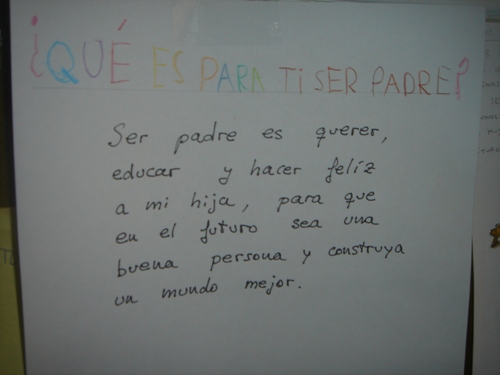 ¿QUÉ ES PARA TI SER PADRE?
Ser padre es querer,
educar y hacer feliz
a mi hija, para que
en el futuro sea una
buena persona y construya
un mundo mejor.